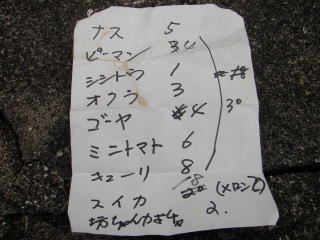 ナス 5
ピーマン 34
シシトウ 1
オクラ 3
ゴーヤ 4
ミニトマト 6
キューリ 8
30
スイカ 18 (メロン乙)
坊ちゃんカボチャ 2.